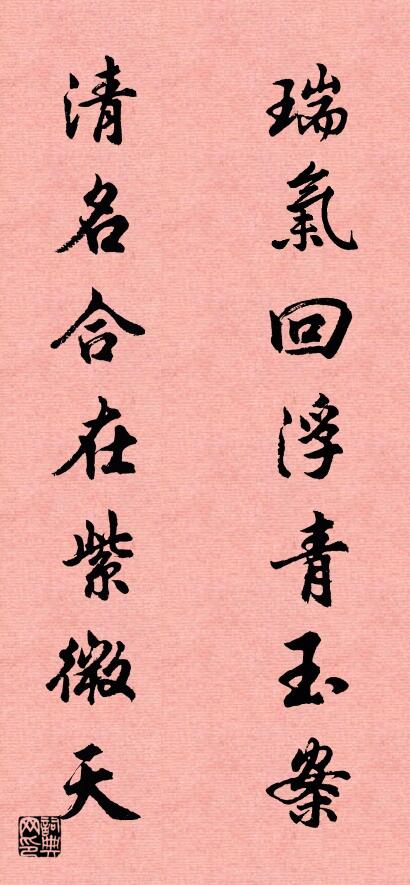 瑞氣回浮青玉案
清名合在紫微天
詞典网印